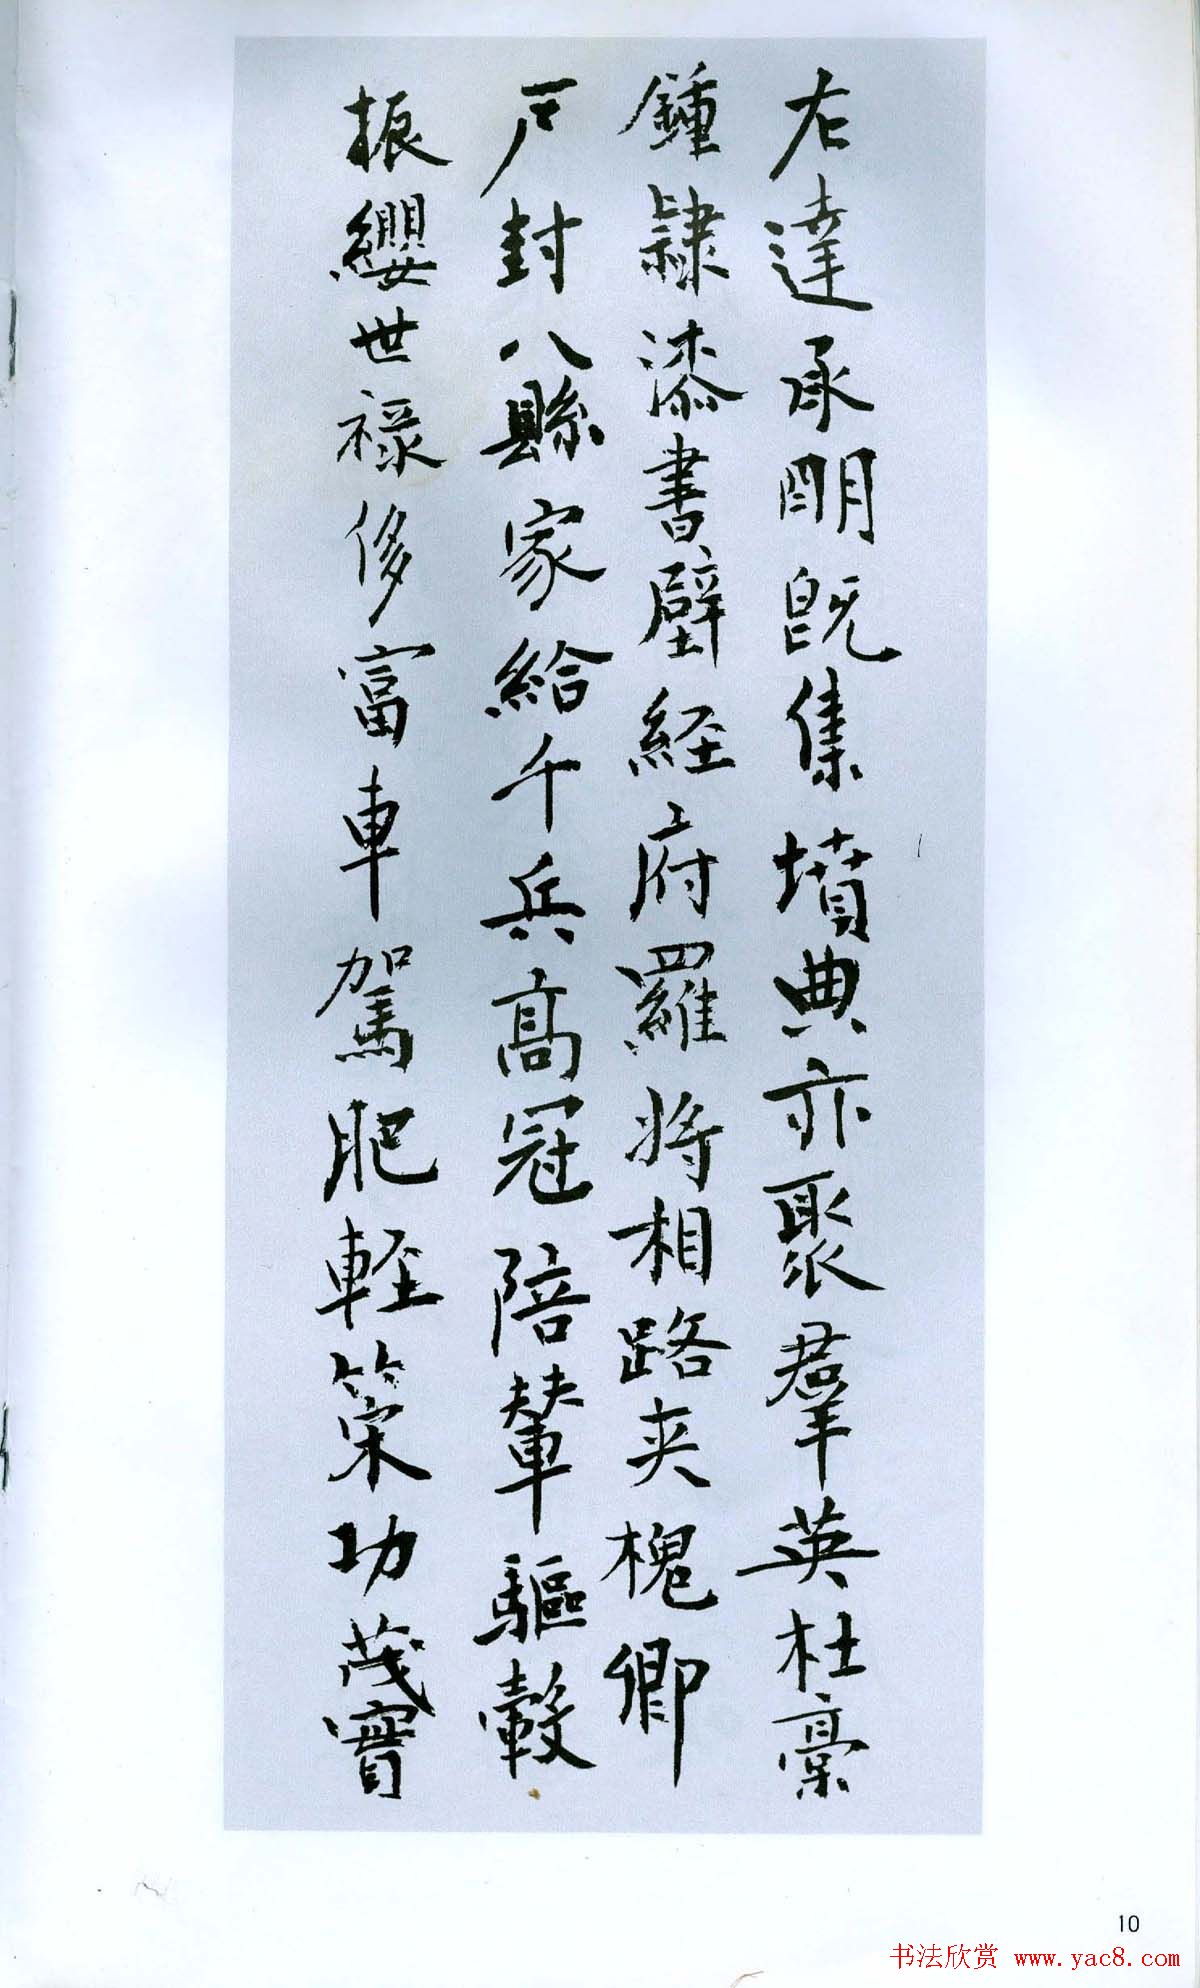 左達承明既集墳典亦聚羣英杜稾
鍾隸漆書壁経府羅将相路夾槐卿
戸封八縣家給千兵高冠陪輦驅轂
振纓世禄侈富車駕肥軽策功茂實
10
书法欣赏 www.yac8.com